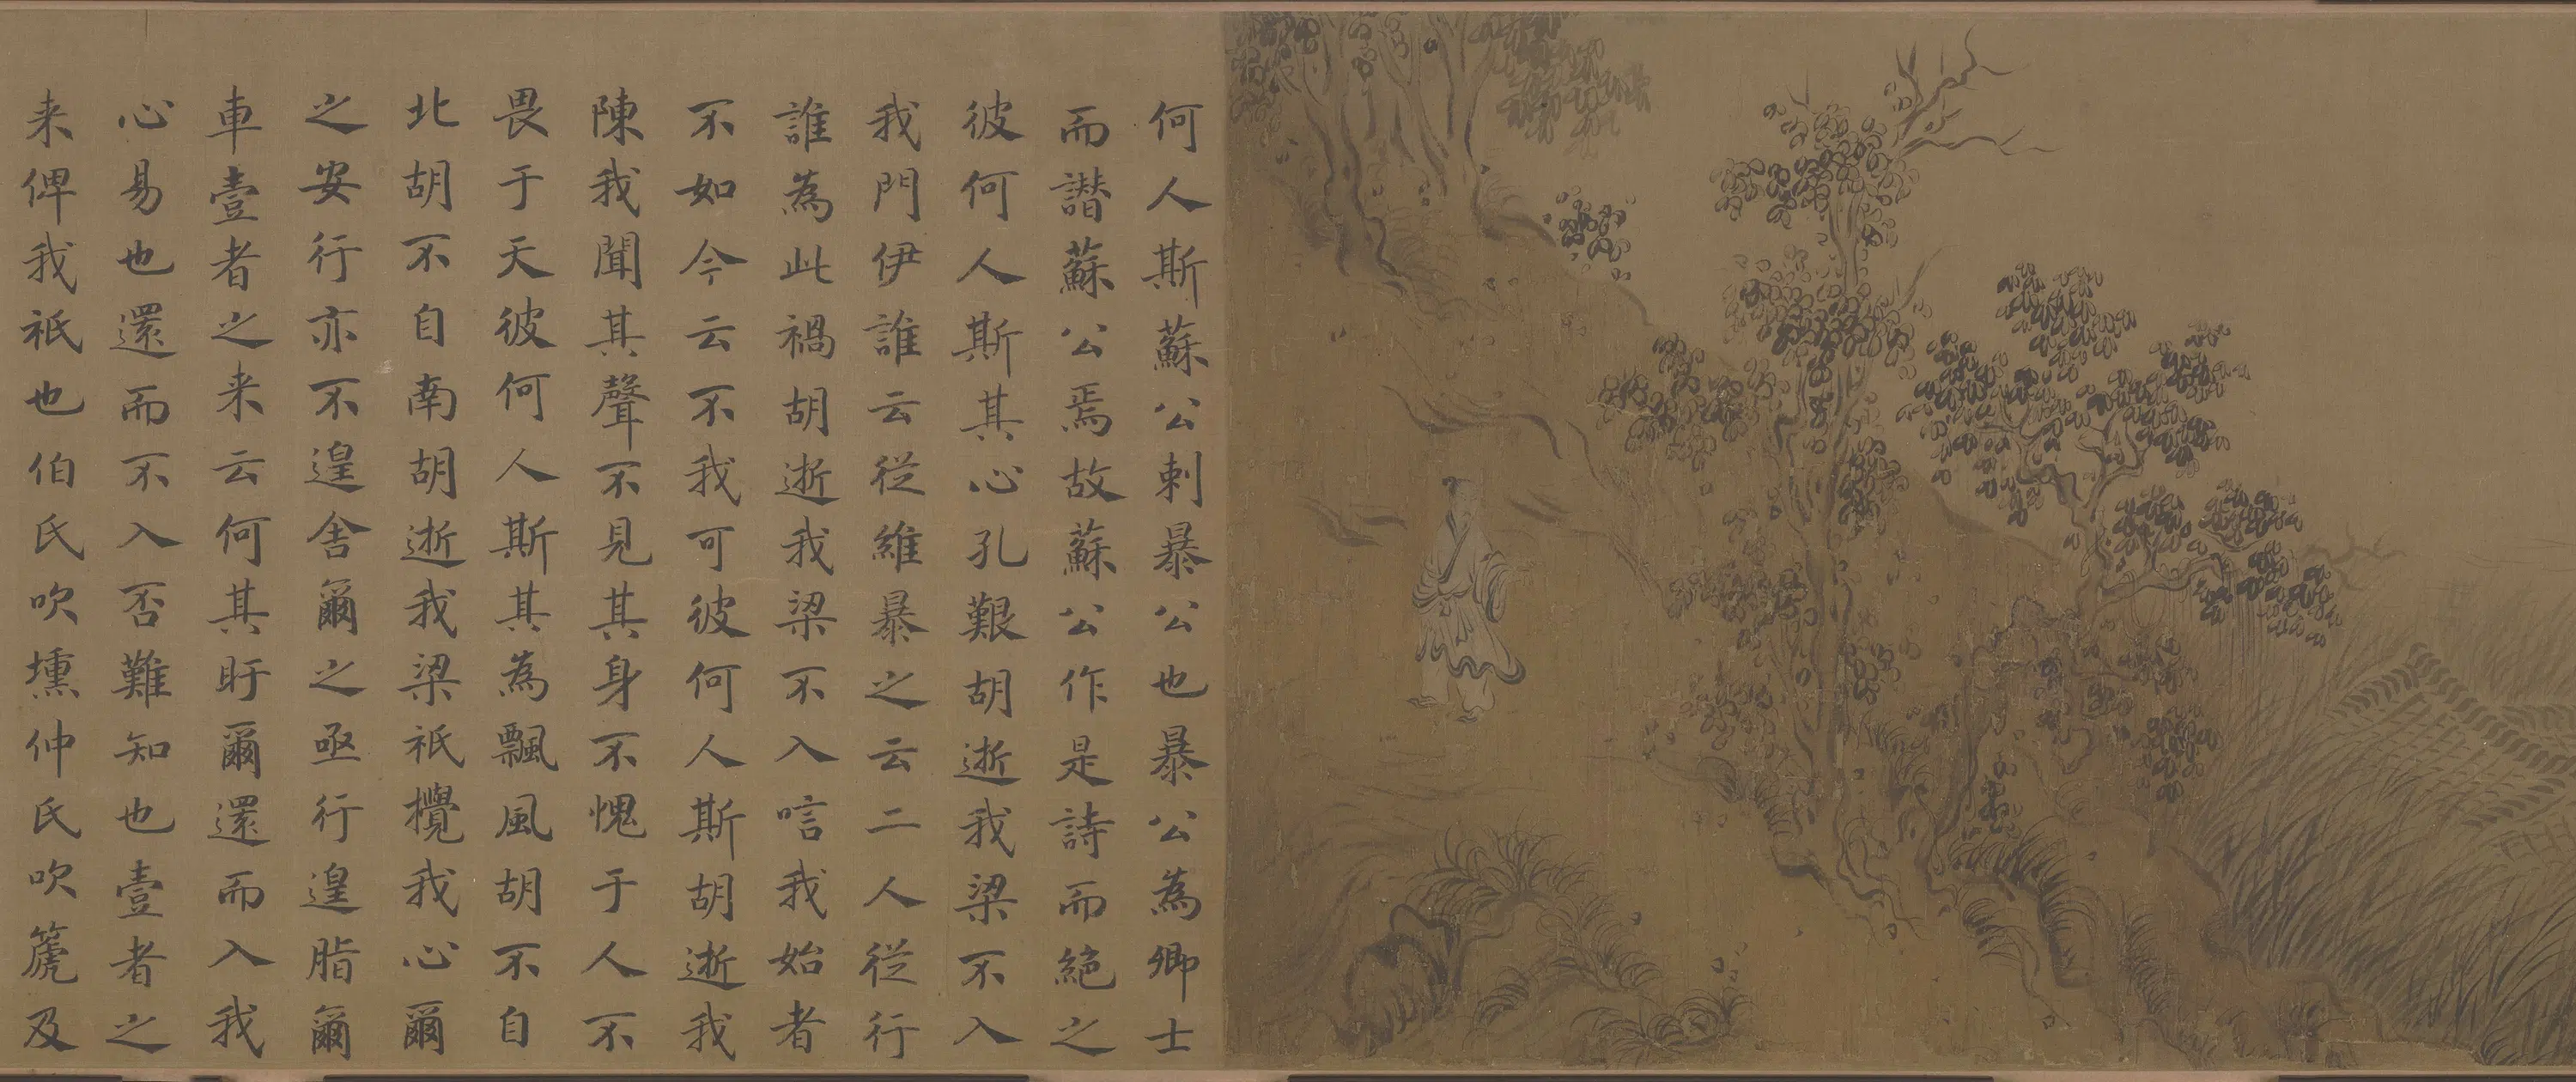 何人斯蘇公刺暴公也暴公為卿士
而譖蘇公焉故蘇公作是詩而絕之
彼何人斯其心孔艱胡逝我梁不入
我門伊誰云從維暴之云二人從行
誰為此禍胡逝我梁不入唁我始者
不如今云不我可彼何人斯胡逝我
陳我聞其聲不見其身不愧于人不
畏于天彼何人斯其為飄風胡不自
北胡不自南胡逝我梁祇攪我心爾
之安行亦不遑舍爾之亟行遑脂爾
車壹者之来云何其盱爾還而入我
心易也還而不入否難知也壹者之
来俾我祇也伯氏吹壎仲氏吹篪及